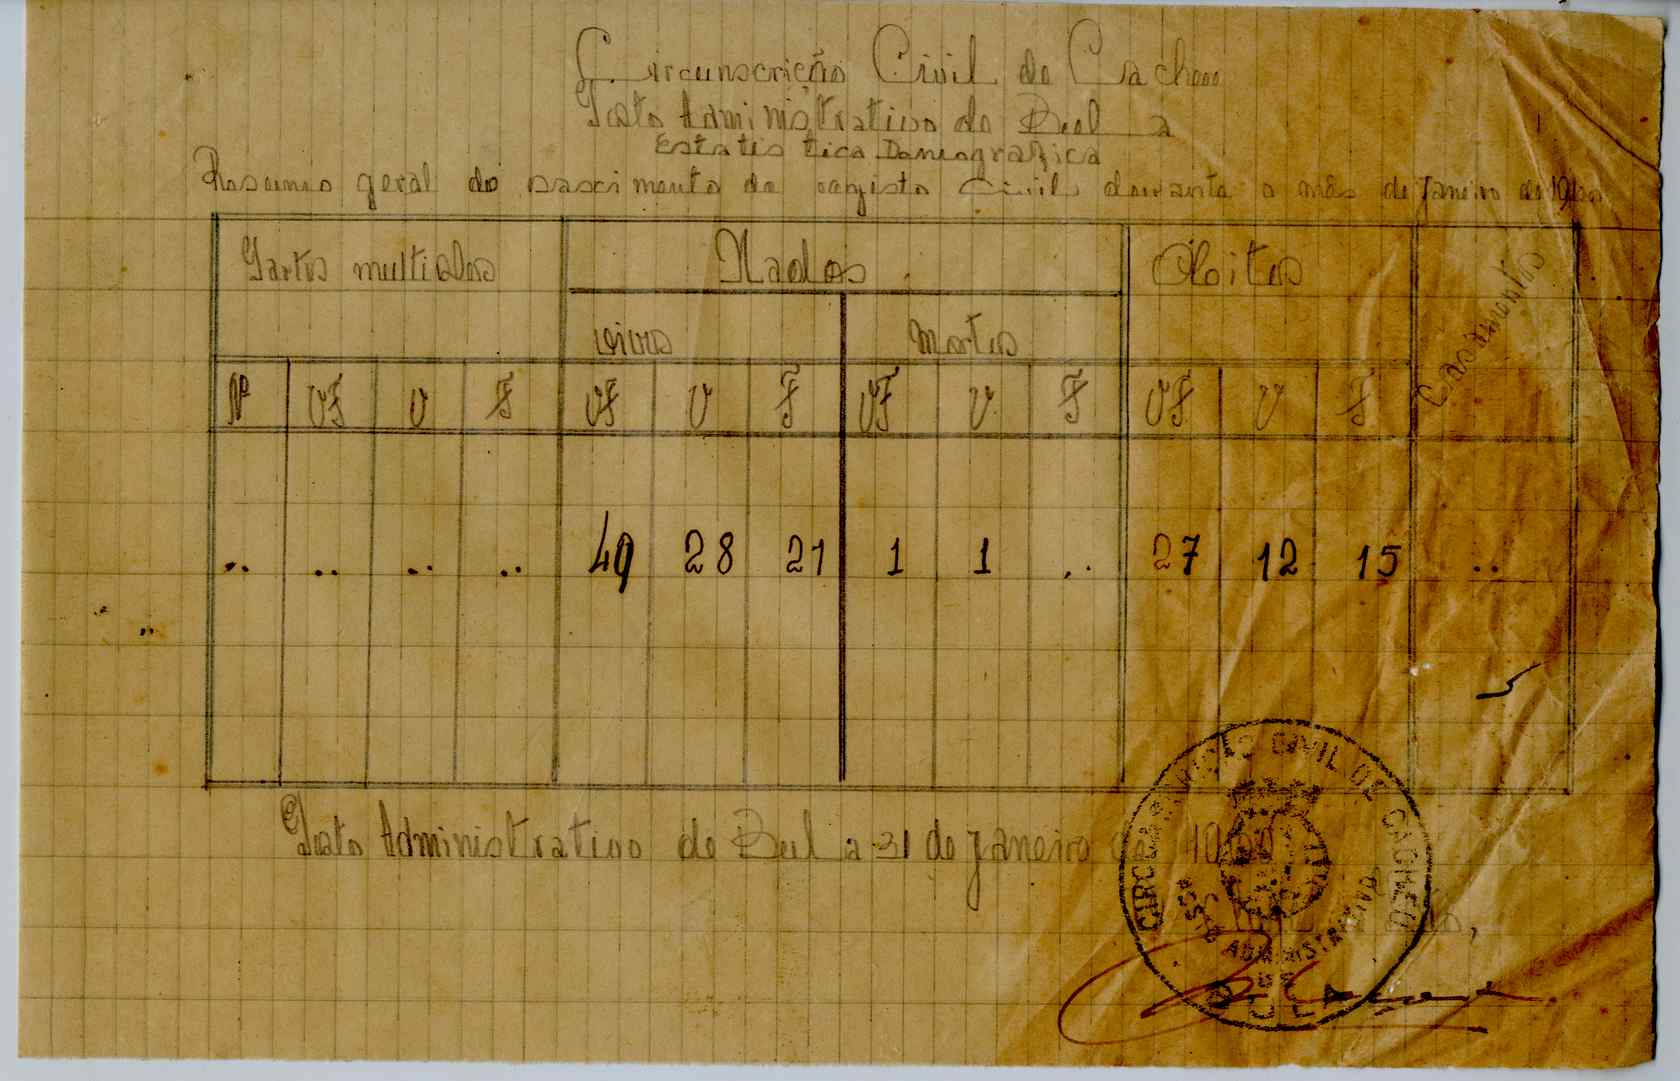 Circunscrição Civil de Cacheu
Posto Administrativo de Bula
Estatistica Demografica
Resumo geral do nascimento do registo Civil durante o mês de Janeiro de
Partos multiplos Nados Obitos Casamentos
vivos Mortos
Nº VF V F VF V F VF V F VF V F
.. .. .. .. 49 28 21 1 1 .. 27 12 15 ..
Posto Administrativo de Bula 31 de Janeiro de
CIRCUNSCRIÇÃO CIVIL DE CACHEU
POSTO ADMINISTRATIVO
DE
BULA